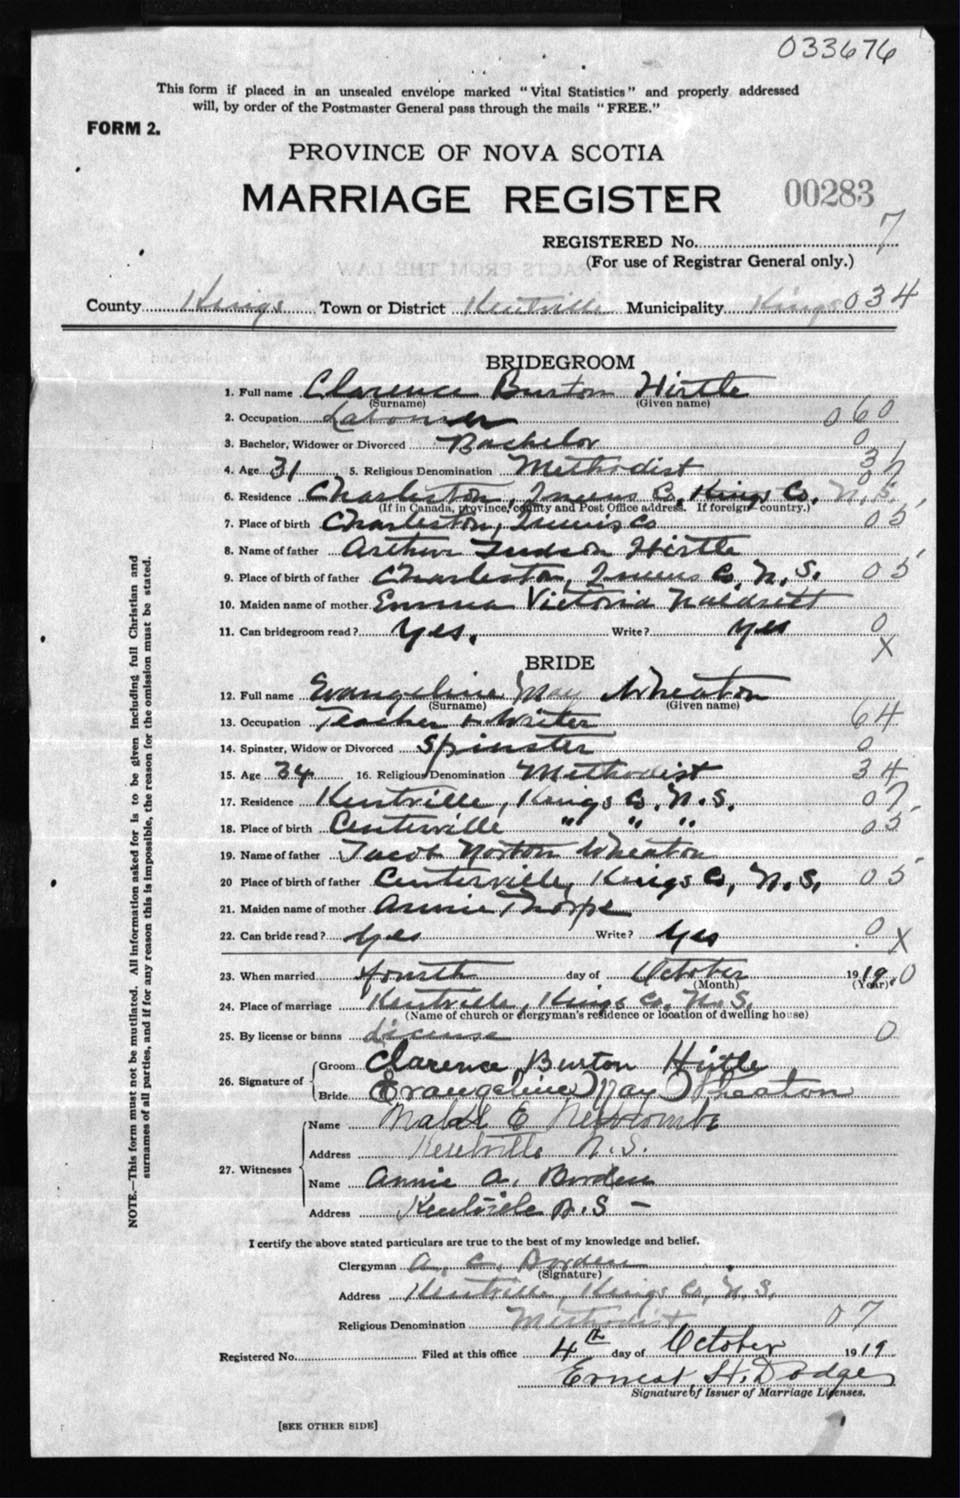 033676
This form if placed in an unsealed envelope marked "Vital Statistics" and properly addressed
will, by order of the Postmaster General pass through the mails "FREE."
FORM 2.
PROVINCE OF NOVA SCOTIA
MARRIAGE REGISTER 00283
REGISTERED No. 7
(For use of Registrar General only.)
County Kings Town or District Kentville Municipality Kings 034
BRIDEGROOM
1. Full name Clarence Burton Hirtle
(Surname) (Given name)
2. Occupation Labourer 060
3. Bachelor, Widower or Divorced Bachelor 0
4. Age 31 5. Religious Denomination Methodist 31
6. Residence Charleston, Queens Co. Kings Co. N.S. 07
(If in Canada, province, county and Post Office address. If foreign country.)
7. Place of birth Charleston, Queens Co 05
8. Name of father Arthur Judson Hirtle
9. Place of birth of father Charleston, Queens Co, N.S. 05
10. Maiden name of mother Emma Victoria
11. Can bridegroom read? Yes. Write? Yes 0
X
BRIDE
12. Full name Evangeline May Wheaton
(Surname) (Given name)
13. Occupation Teacher & Writer 64
14. Spinster, Widow or Divorced Spinster 0
15. Age 34 16. Religious Denomination Methodist 34
17. Residence Kentville, Kings Co. N.S. 07
18. Place of birth Centerville " " " 05
19. Name of father Jacob Norton Wheaton
20 Place of birth of father Centerville, Kings Co, N.S. 05
21. Maiden name of mother Annie Thorpe
22. Can bride read? Yes Write? Yes 0 X
23. When married fourth day of October 1919. 0
(Month) (Year)
24. Place of marriage Kentville, Kings Co. N.S.
(Name of church or clergyman's residence or location of dwelling house)
25. By license or banns License 0
26. Signature of Groom Clarence Burton Hirtle
Bride Evangeline May Wheaton
27. Witnesses Name Mabel E Newcombe
Address Kentville N.S.
Name Annie A. Borden
Address Kentville N.S -
I certify the above stated particulars are true to the best of my knowledge and belief.
Clergyman A. C. Borden
(Signature)
Address Kentville, Kings Co, N.S.
Religious Denomination Methodist 07
Registered No. Filed at this office 4th day of October 1919
Ernest H. Dodge
Signature of Issuer of Marriage Licenses.
[SEE OTHER SIDE]
NOTE.—This form must not be mutilated. All information asked for is to be given including full Christian and
surnames of all parties, and if for any reason this is impossible, the reason for the omission must be stated.